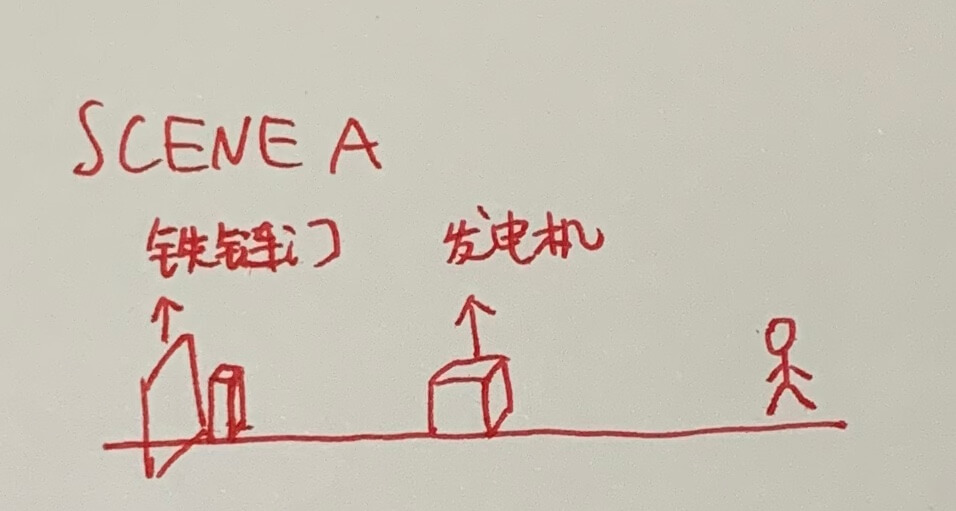 SCENE A
铁链门 发电机